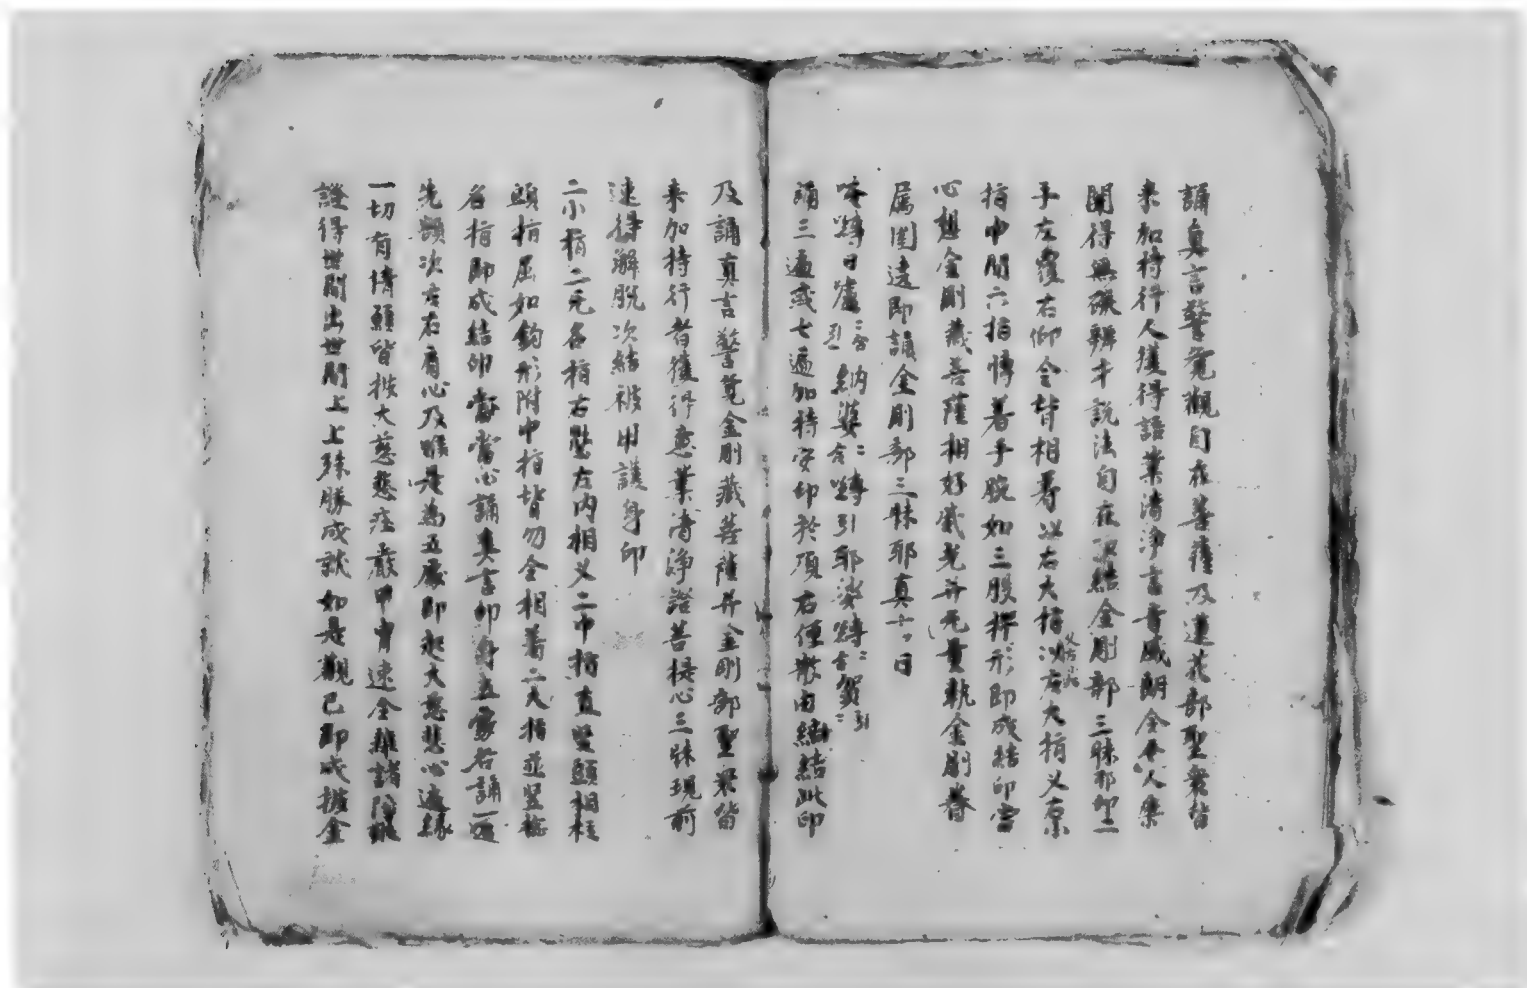 誦真言警覺觀自在菩薩及蓮花部聖衆皆
来加持行人獲得語業清淨言音威朗令人樂
聞得無礙辯才說法自在次結金剛部三昧耶印二
手左覆右仰令背相着以右大指以左大指叉
指中間六指博着手腕如三股杵形即成結印當
心想金剛藏菩薩相好威光并无量執金剛眷
属圍遶即誦金剛部三昧耶真言曰
唵嚩日嚧二合引納婆二合嚩引耶娑嚩二合賀二引
誦三遍或七遍加持安印於頂右便散由結此印
及誦真言警覺金剛藏菩薩并金剛部聖衆皆
来加持行者獲得意業清淨證菩提心三昧現前
速得解脫次結被甲護身印
二小指二无名指右壓左内相叉二中指直竪頭相拄
頭指屈如鈎形附中指背勿令相着二大指並竪捻
名指即成結印當心誦真言印身五處各誦一遍
先額次右左肩心及喉是為五處即起大慈悲心遍緣
一切有情願皆披大慈悲莊嚴甲冑速令離諸障難
證得世間出世間上上殊勝成就如是觀已即成擐金